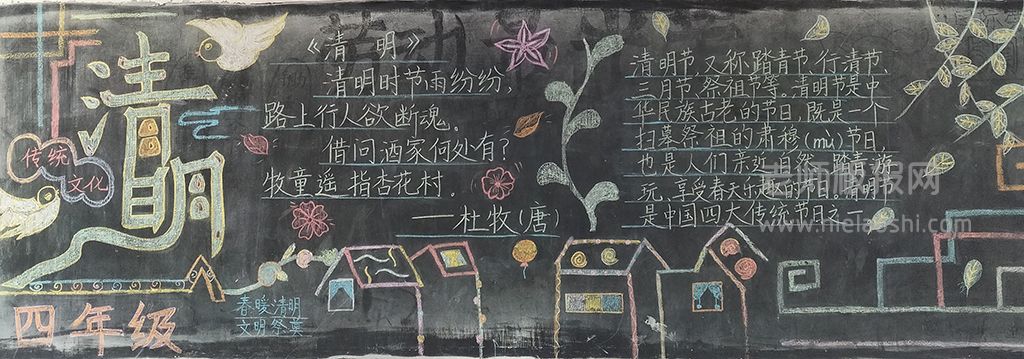 清明
传统
文化
四年级
春暖清明
文明祭英
《清明》
清明时节雨纷纷,
路上行人欲断魂。
借问酒家何处有?
牧童遥指杏花村。
——杜牧(唐)
清明节,又称踏青节、行清节、
三月节、祭祖节等。清明节是中
华民族古老的节日,既是一个
扫墓祭祖的肃穆(mù)节日,
也是人们亲近自然、踏青游
玩、享受春天乐趣的节日。清明节
是中国四大传统节日之一。
老师板报网